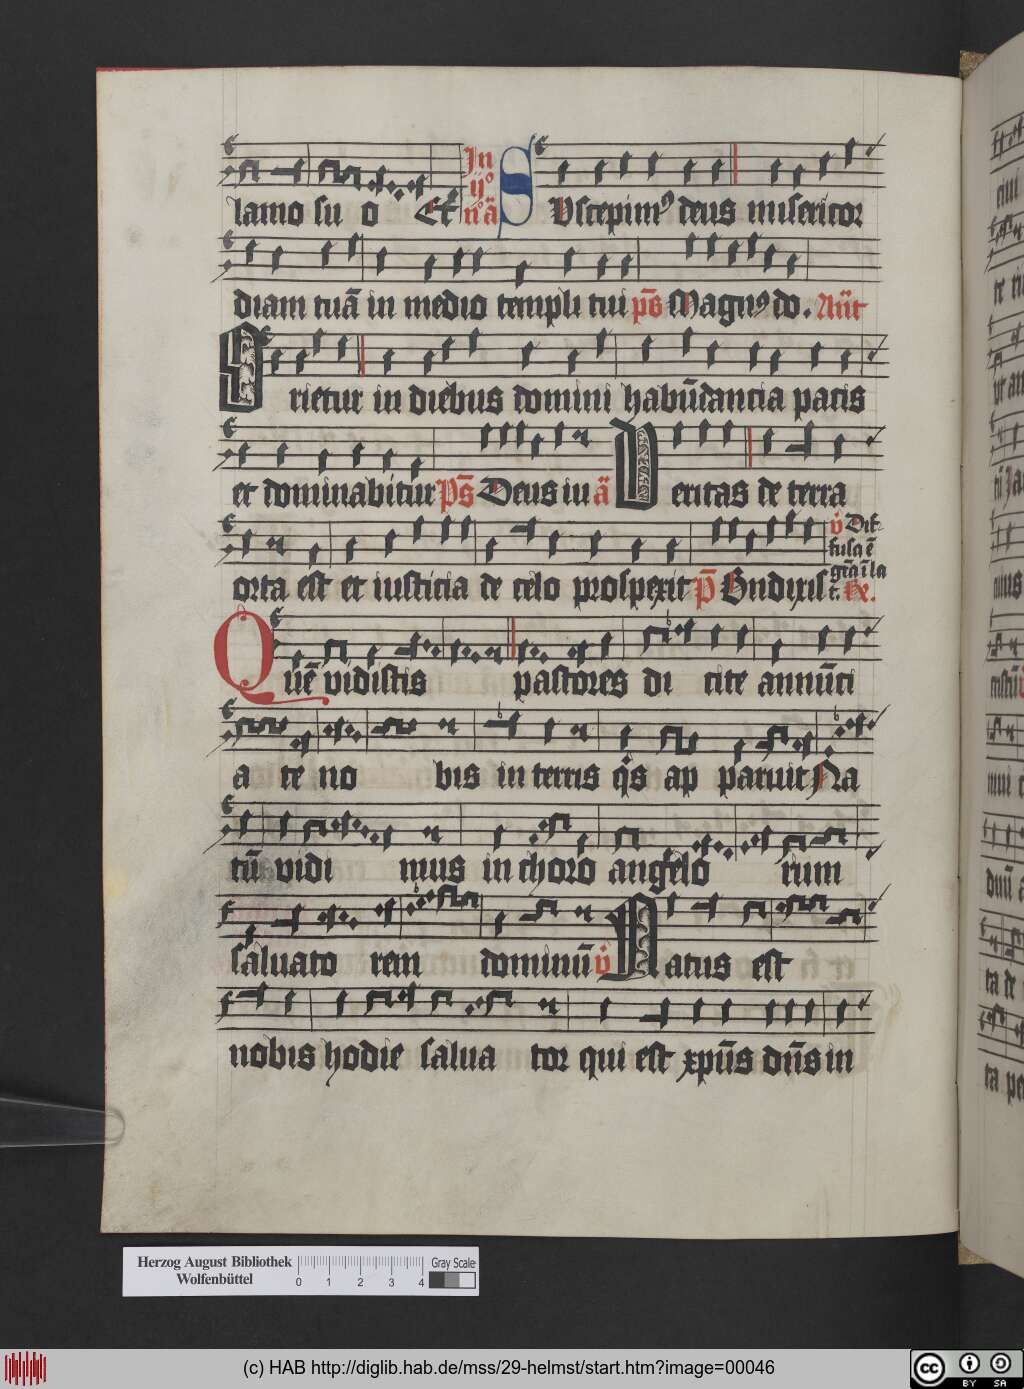 lamo su o Et In ijº nºā SUscepimꝰ deus misericor
diam tuā in medio templi tui ps̄ Magnꝰ do. Añt
Orietur in diebus domini habūdancia pacis
et dominabitur Ps̄ Deus iu ā Veritas de terra
orta est et iusticia de celo prospexit p̄ Bn̄dixis
v̇ Dif
fusa ē
gr̄a ī la
t. Re.
Quē vidistis pastores di cite annūci
a te no bis in terris qͥs ap paruit Na
tū vidi mus in choro angelo rum
saluato rem dominū v̇ Natus est
nobis hodie salua tor qui est xp̄us dn̄s in
Herzog August Bibliothek
Wolfenbüttel
0 1 2 3 4
Gray Scale
(c) HAB http://diglib.hab.de/mss/29-helmst/start.htm?image=00046
cc BY SA